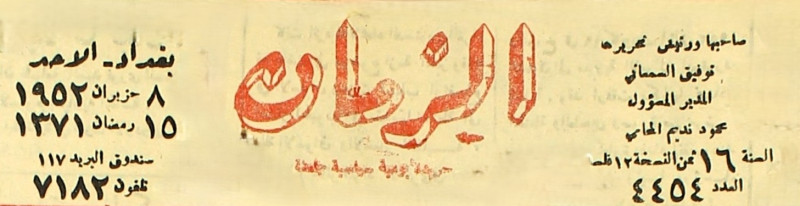 صاحبها ورئيس تحريرها
توفيق السمعاني
المدير المسؤول
محمود نديم المحامي
السنة ١٦ ثمن النسخة ١٢ فلسا
العدد ٤٤٥٤
الزمان
بغداد - الاحد
٨ حزيران ١٩٥٢
١٥ رمضان ١٣٧١
صندوق البريد ١١٧
تلفون ٧١٨٢